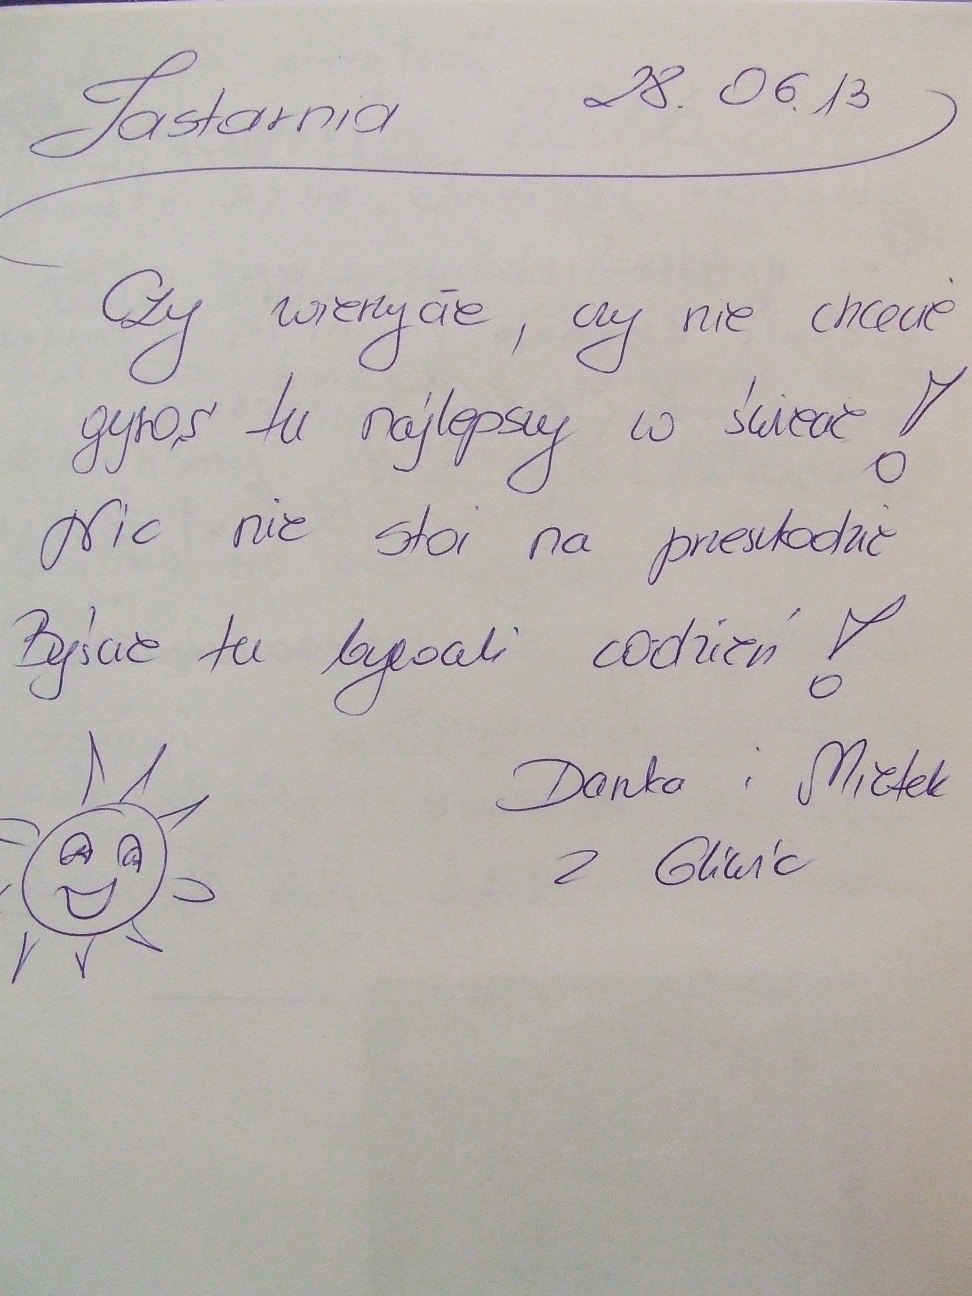 Jastarnia 28.06.13
Czy wierzycie, czy nie chcecie
gyros tu najlepszy w świecie!
Nic nie stoi na przeszkodzie
Byście tu bywali codzień!
Danka i Mietek
z Gliwic